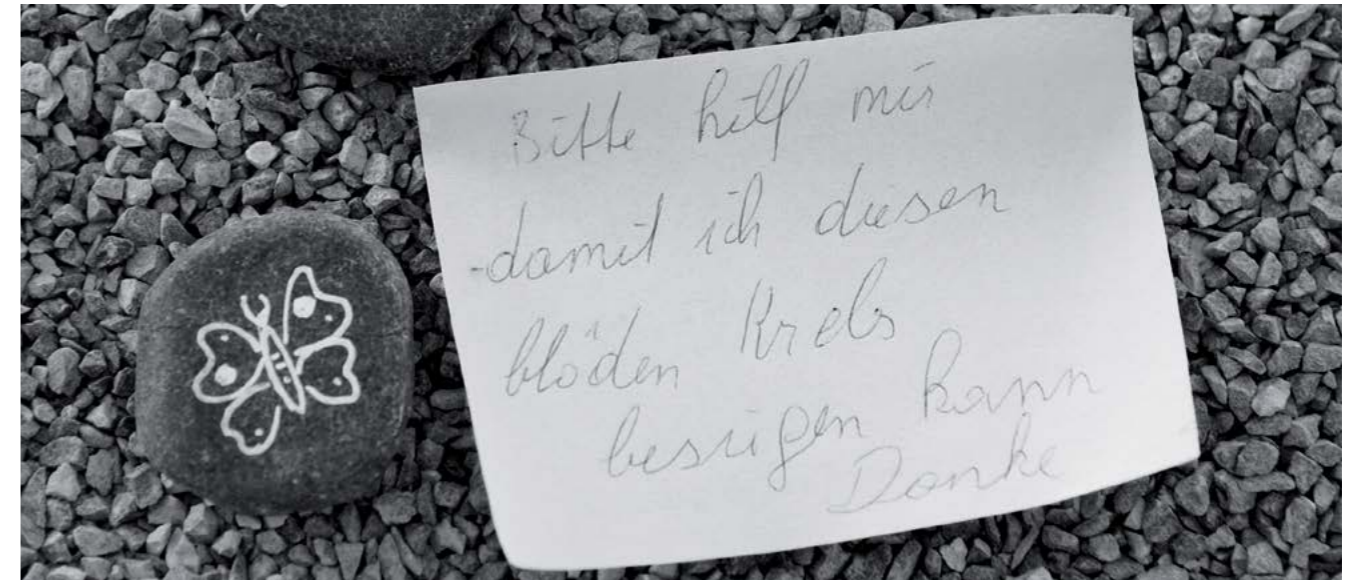 Bitte hilf mir
damit ich diesen
blöden Krebs
besiegen kann
Danke